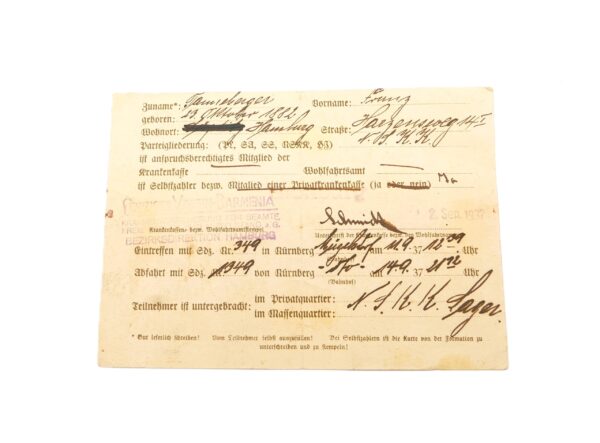 Zuname*: Tanneberger Vorname: Franz
geboren: 23. Oktober 1882
Wohnort: Hamburg Straße: 14 I
Parteigliederung: (PL, SA, SS, NSKK, HJ) N. S. K. K.
ist anspruchsberechtigtes Mitglied der
Krankenkasse — Wohlfahrtsamt —
ist Selbstzahler bezw. Mitglied einer Privatkrankenkasse (ja oder nein) Ja
BARMENIA
BEAMTE
BEZIRKSDIREKTION HAMBURG
Schmidt
2. Sep. 1937
Krankenkassen- bezw. Wohlfahrtsamtsstempel Unterschrift der Krankenkasse bezw. des Wohlfahrtsamtes
Eintreffen mit Sdz. Nr. 349 in Nürnberg am 11.9. 37 12 39 Uhr
Abfahrt mit Sdz. Nr. 1349 von Nürnberg - dto - am 14.9. 37 21 22 Uhr
(Bahnhof)
Teilnehmer ist untergebracht: im Privatquartier:
im Massenquartier: N. S. K. K. Lager.
* Gut leserlich schreiben! Vom Teilnehmer selbst auszufüllen! Bei Selbstzahlern ist die Karte von der Formation zu
unterschreiben und zu stempeln!